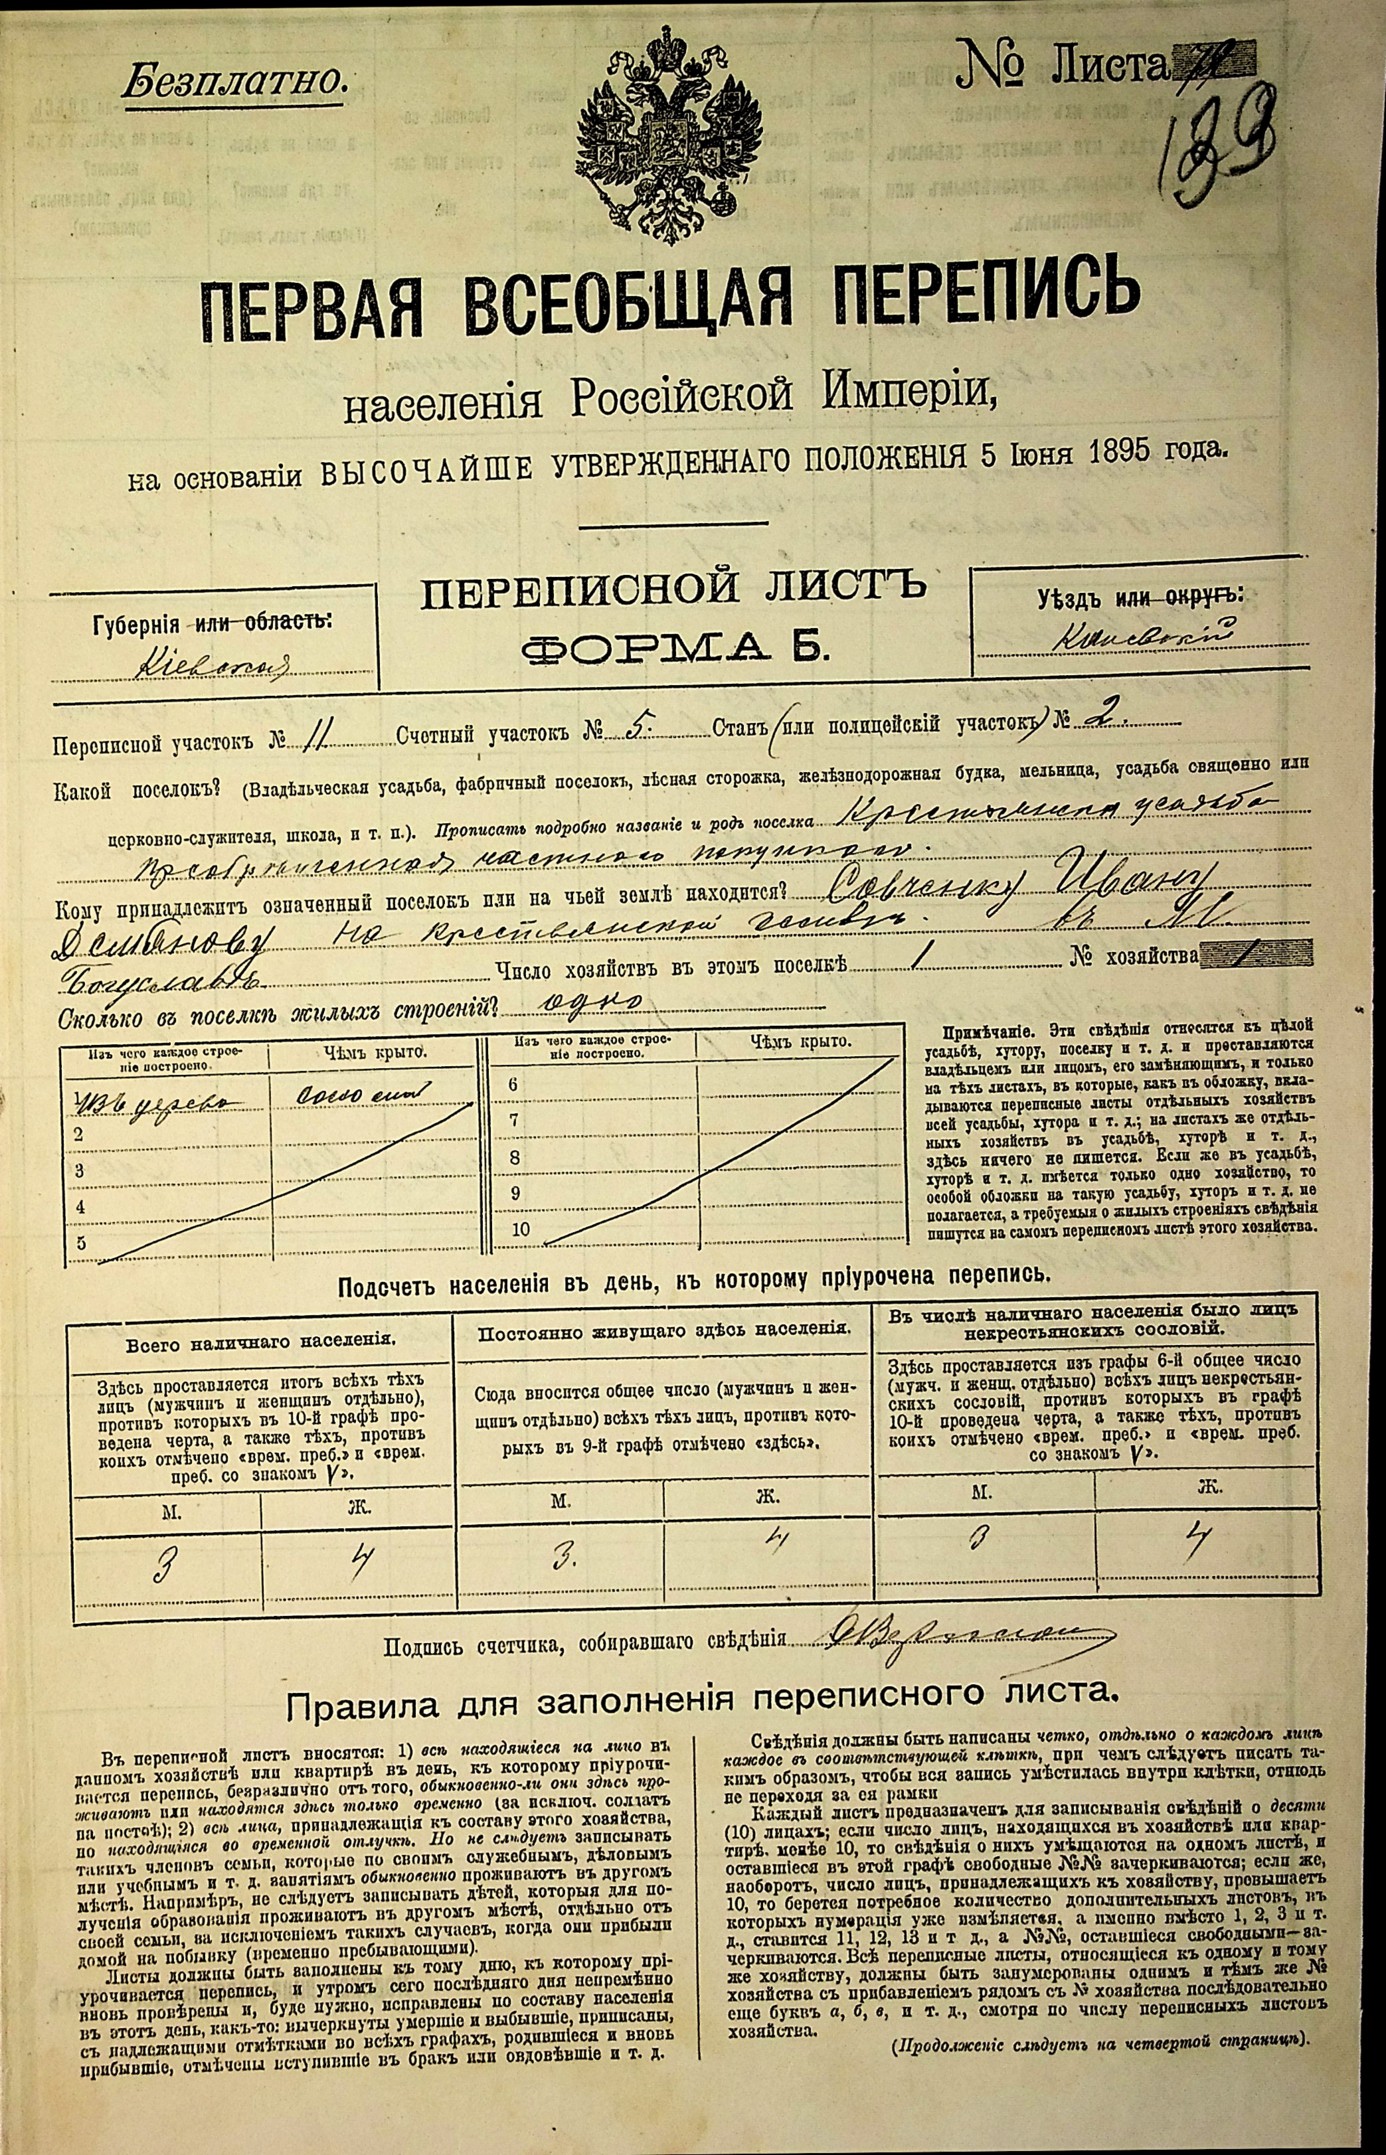 Безплатно.
№ Листа
ПЕРВАЯ ВСЕОБЩАЯ ПЕРЕПИСЬ
населенія Россійской Имперіи,
на основаніи ВЫСОЧАЙШЕ УТВЕРЖДЕННАГО ПОЛОЖЕНІЯ 5 Іюня 1895 года.
ПЕРЕПИСНОЙ ЛИСТЪ
ФОРМА Б.
Губернія или область:
Кіевская
Уѣздъ или округъ:
Каневскій
Переписной участокъ № 11 Счетный участокъ № 5. Станъ (или полицейскій участокъ) № 2.
Какой поселокъ? (Владѣльческая усадьба, фабричный поселокъ, лѣсная сторожка, желѣзнодорожная будка, мельница, усадьба священно или
церковно-служителя, школа, и т. п.). Прописать подробно названіе и родъ поселка усадьба
Кому принадлежитъ означенный поселокъ или на чьей землѣ находится? Совченку Ивану
Демянову на крестьянской въ М.
Богуславѣ Число хозяйствъ въ этомъ поселкѣ 1 № хозяйства 1
Сколько въ поселкѣ жилыхъ строеній? одно
Изъ чего каждое строе-
ніе построено.
Чѣмъ крыто.
Изъ чего каждое строе-
ніе построено.
Чѣмъ крыто.
1 Изъ дерева соломой
2
3
4
5
6
7
8
9
10
Примѣчаніе. Эти свѣдѣнія относятся къ цѣлой
усадьбѣ, хутору, поселку и т. д. и проставляются
владѣльцемъ или лицомъ, его замѣняющимъ, и только
на тѣхъ листахъ, въ которые, какъ въ обложку, вкла-
дываются переписные листы отдѣльныхъ хозяйствъ
всей усадьбы, хутора и т. д.; на листахъ же отдѣль-
ныхъ хозяйствъ въ усадьбѣ, хуторѣ и т. д.,
здѣсь ничего не пишется. Если же въ усадьбѣ,
хуторѣ и т. д. имѣется только одно хозяйство, то
особой обложки на такую усадьбу, хуторъ и т. д. не
полагается, а требуемыя о жилыхъ строеніяхъ свѣдѣнія
пишутся на самомъ переписномъ листѣ этого хозяйства.
Подсчетъ населенія въ день, къ которому пріурочена перепись.
Всего наличнаго населенія.
Здѣсь проставляется итогъ всѣхъ тѣхъ
лицъ (мужчинъ и женщинъ отдѣльно),
противъ которыхъ въ 10-й графѣ про-
ведена черта, а также тѣхъ, противъ
коихъ отмѣчено «врем. преб.» и «врем.
преб. со знакомъ V».
М. Ж.
3 4
Постоянно живущаго здѣсь населенія.
Сюда вносится общее число (мужчинъ и жен-
щинъ отдѣльно) всѣхъ тѣхъ лицъ, противъ кото-
рыхъ въ 9-й графѣ отмѣчено «здѣсь».
М. Ж.
3. 4
Въ числѣ наличнаго населенія было лицъ
некрестьянскихъ сословій.
Здѣсь проставляется изъ графы 6-й общее число
(мужч. и женщ. отдѣльно) всѣхъ лицъ некрестьян-
скихъ сословій, противъ которыхъ въ графѣ
10-й проведена черта, а также тѣхъ, противъ
коихъ отмѣчено «врем. преб.» и «врем. преб.
со знакомъ V».
М. Ж.
3 4
Подпись счетчика, собиравшаго свѣдѣнія
Правила для заполненія переписного листа.
Въ переписной листъ вносятся: 1) всѣ находящіеся на лицо въ
данномъ хозяйствѣ или квартирѣ въ день, къ которому пріурочи-
вается перепись, безразлично отъ того, обыкновенно-ли они здѣсь про-
живаютъ или находятся здѣсь только временно (за исключ. солдатъ
на постоѣ); 2) всѣ лица, принадлежащія къ составу этого хозяйства,
но находящіеся во временной отлучкѣ. Но не слѣдуетъ записывать
такихъ членовъ семьи, которые по своимъ служебнымъ, дѣловымъ
или учебнымъ и т. д. занятіямъ обыкновенно проживаютъ въ другомъ
мѣстѣ. Напримѣръ, не слѣдуетъ записывать дѣтей, которыя для по-
лученія образованія проживаютъ въ другомъ мѣстѣ, отдѣльно отъ
своей семьи, за исключеніемъ такихъ случаевъ, когда они прибыли
домой на побывку (временно пребывающими).
Листы должны быть заполнены къ тому дню, къ которому прі-
урочивается перепись, и утромъ сего послѣдняго дня непремѣнно
вновь провѣрены и, буде нужно, исправлены по составу населенія
въ этотъ день, какъ-то: вычеркнуты умершіе и выбывшіе, приписаны,
съ надлежащими отмѣтками во всѣхъ графахъ, родившіеся и вновь
прибывшіе, отмѣчены вступившіе въ бракъ или овдовѣвшіе и т. д.
Свѣдѣнія должны быть написаны четко, отдѣльно о каждомъ лицѣ
каждое въ соотвѣтствующей клѣткѣ, при чемъ слѣдуетъ писать та-
кимъ образомъ, чтобы вся запись умѣстилась внутри клѣтки, отнюдь
не переходя за ея рамки
Каждый листъ предназначенъ для записыванія свѣдѣній о десяти
(10) лицахъ; если число лицъ, находящихся въ хозяйствѣ или квар-
тирѣ, менѣе 10, то свѣдѣнія о нихъ умѣщаются на одномъ листѣ, и
оставшіеся въ этой графѣ свободные №№ зачеркиваются; если же,
наоборотъ, число лицъ, принадлежащихъ къ хозяйству, превышаетъ
10, то берется потребное количество дополнительныхъ листовъ, въ
которыхъ нумерація уже измѣняется, а именно вмѣсто 1, 2, 3 и т.
д., ставится 11, 12, 13 и т д., а №№, оставшіеся свободными—за-
черкиваются. Всѣ переписные листы, относящіеся къ одному и тому
же хозяйству, должны быть занумерованы однимъ и тѣмъ же №
хозяйства съ прибавленіемъ рядомъ съ № хозяйства послѣдовательно
еще буквъ а, б, в, и т. д., смотря по числу переписныхъ листовъ
хозяйства.
(Продолженіе слѣдуетъ на четвертой страницѣ).